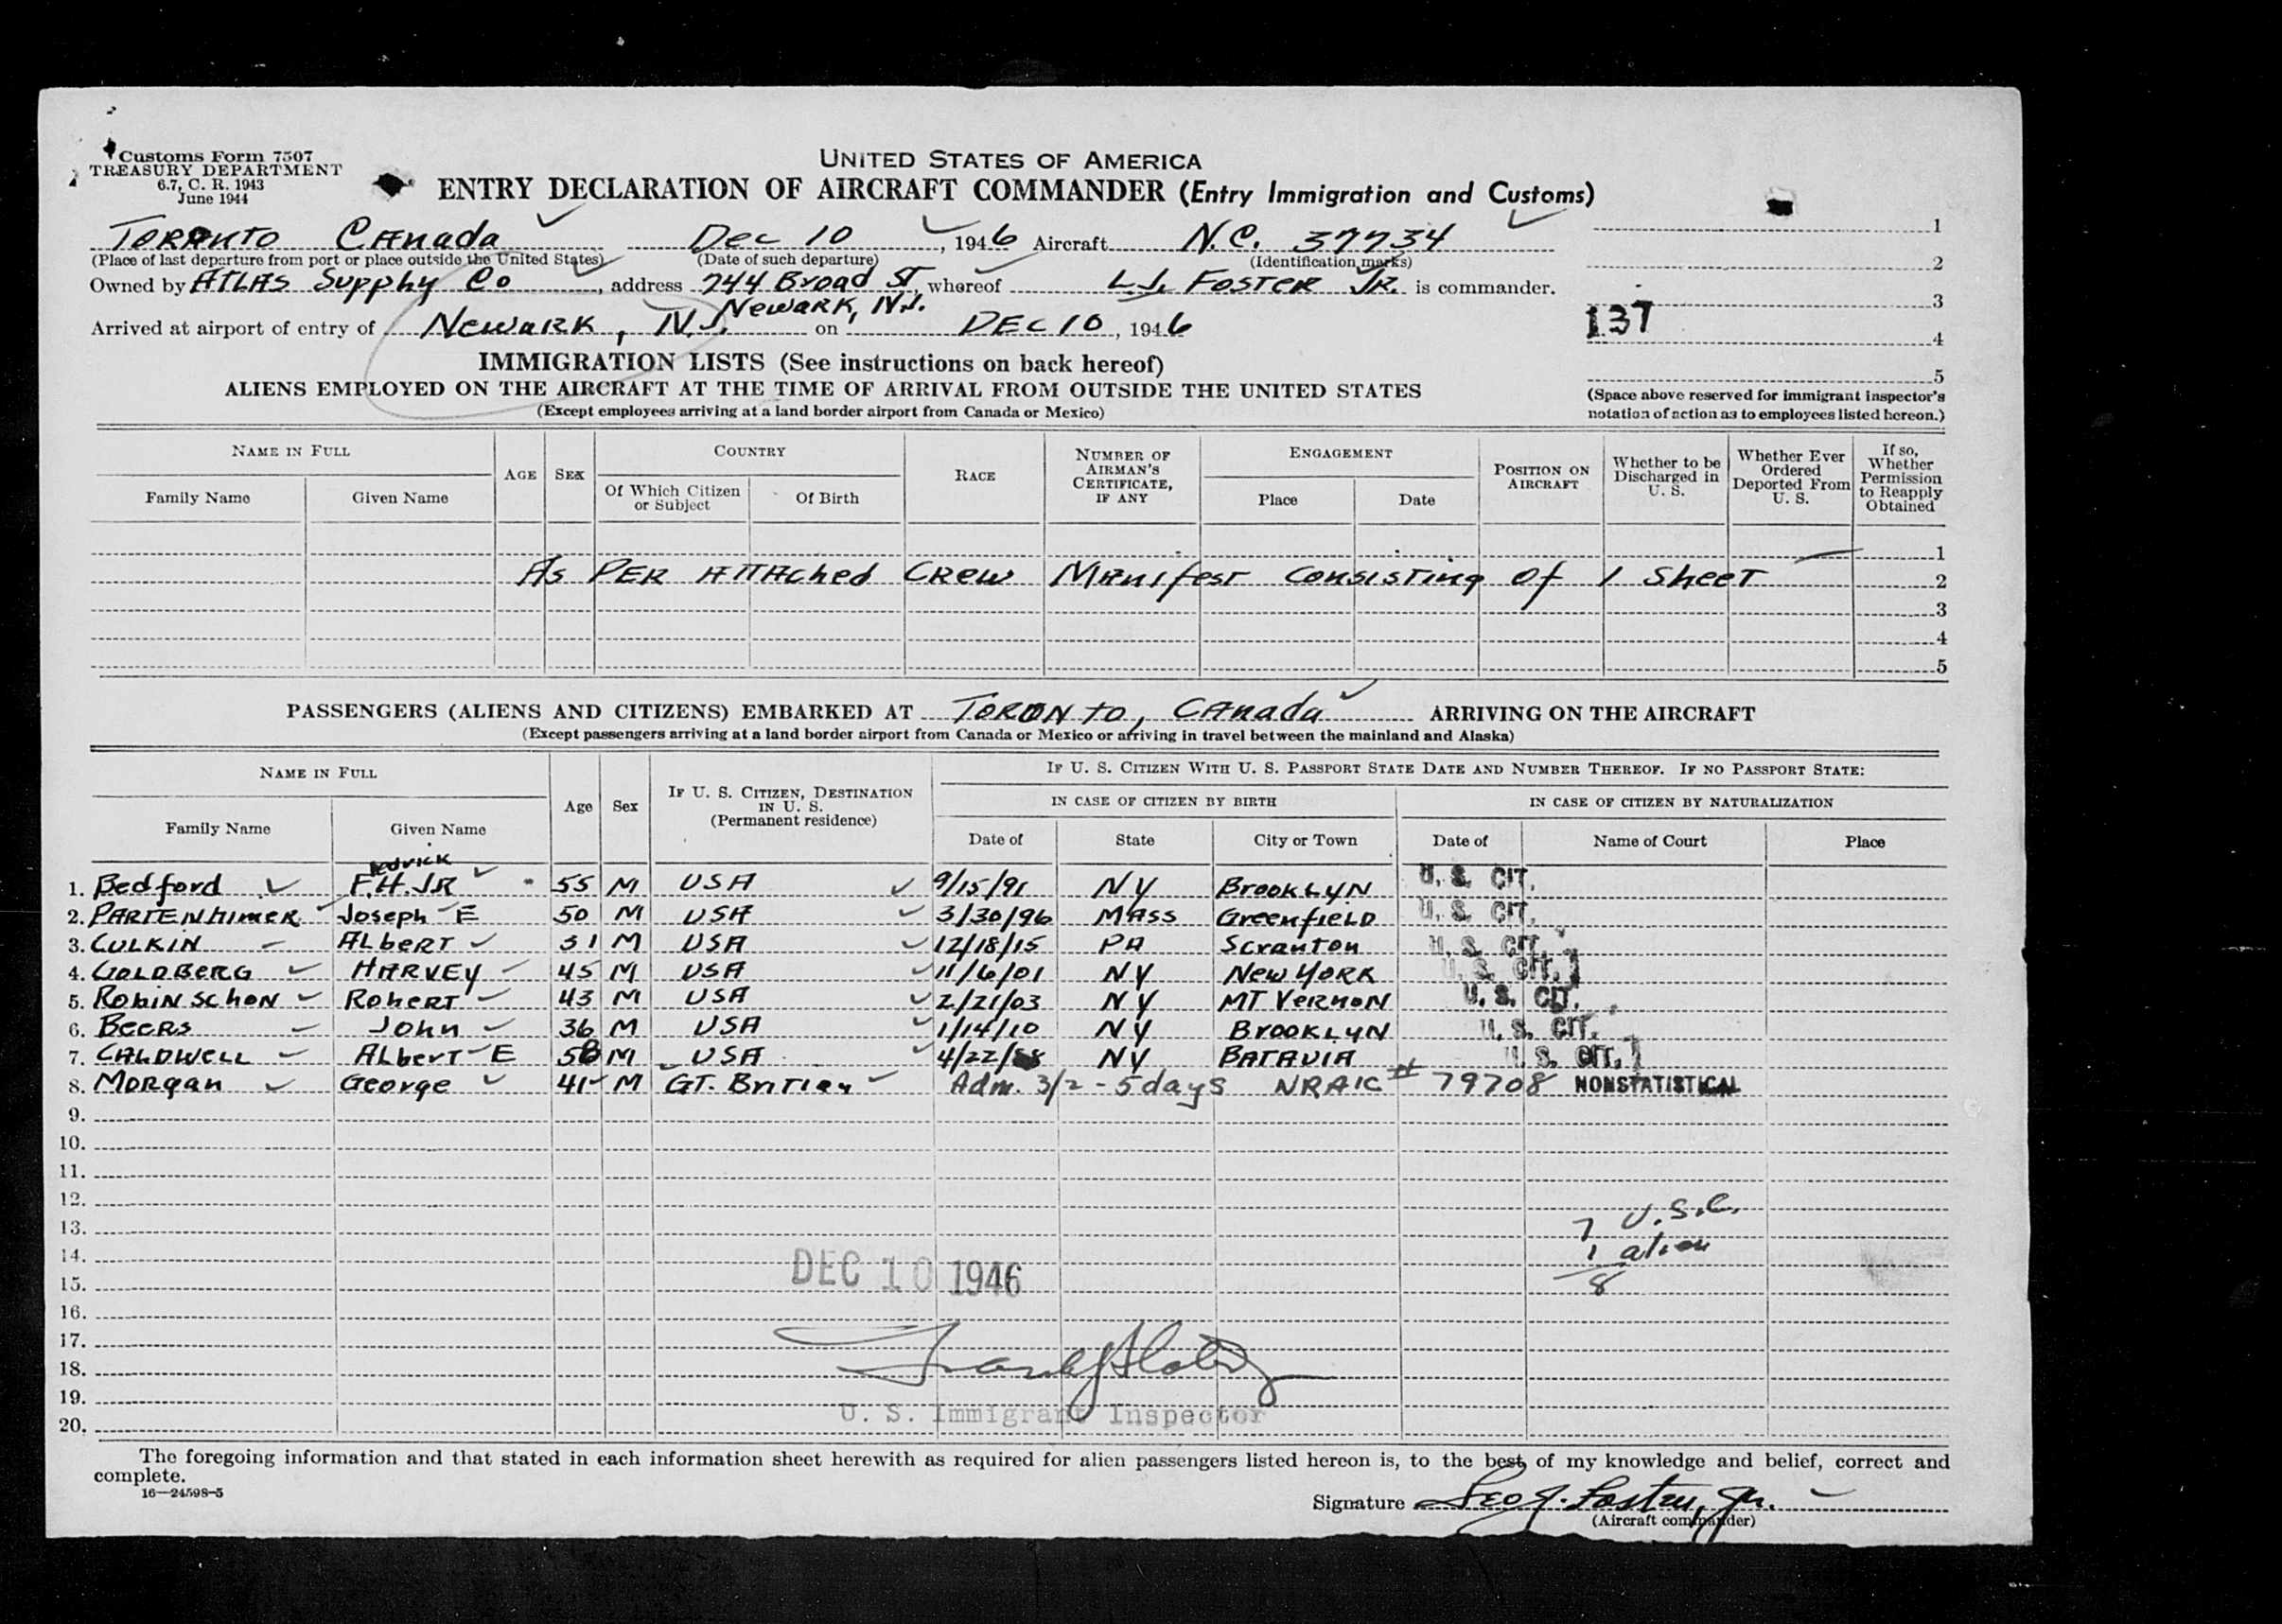 Customs Form 7507
TREASURY DEPARTMENT
6.7, C. R. 1943
June 1944
UNITED STATES OF AMERICA
ENTRY DECLARATION OF AIRCRAFT COMMANDER (Entry Immigration and Customs)
Toronto Canada Dec 10, 1946 Aircraft N.C. 37734
(Place of last departure from port or place outside the United States) (Date of such departure) (Identification marks)
Owned by ATLAS Supply Co, address 744 Broad St, whereof L.J. Foster Jr. is commander.
Newark, N.J.
Arrived at airport of entry of Newark, N.J. on Dec 10, 1946
1
2
3
4
5
137
(Space above reserved for immigrant inspector's
notation of action as to employees listed hereon.)
IMMIGRATION LISTS (See instructions on back hereof)
ALIENS EMPLOYED ON THE AIRCRAFT AT THE TIME OF ARRIVAL FROM OUTSIDE THE UNITED STATES
(Except employees arriving at a land border airport from Canada or Mexico)
NAME IN FULL
Family Name Given Name
AGE SEX
COUNTRY
Of Which Citizen or Subject Of Birth
RACE
NUMBER OF AIRMAN'S CERTIFICATE, IF ANY
ENGAGEMENT
Place Date
POSITION ON AIRCRAFT
Whether to be Discharged in U. S.
Whether Ever Ordered Deported From U. S.
If so, Whether Permission to Reapply Obtained
1
As per attached Crew Manifest Consisting of 1 Sheet 2
3
4
5
PASSENGERS (ALIENS AND CITIZENS) EMBARKED AT Toronto, Canada ARRIVING ON THE AIRCRAFT
(Except passengers arriving at a land border airport from Canada or Mexico or arriving in travel between the mainland and Alaska)
NAME IN FULL
Family Name Given Name
Age Sex
IF U. S. CITIZEN, DESTINATION IN U. S. (Permanent residence)
IF U. S. CITIZEN WITH U. S. PASSPORT STATE DATE AND NUMBER THEREOF. IF NO PASSPORT STATE:
IN CASE OF CITIZEN BY BIRTH
Date of State City or Town
IN CASE OF CITIZEN BY NATURALIZATION
Date of Name of Court Place
1. Bedford F.H. JR 55 M USA 9/15/91 NY Brooklyn U. S. CIT.
2. Partenhimer Joseph E 50 M USA 3/30/96 Mass Greenfield U. S. CIT.
3. Culkin Albert 31 M USA 12/18/15 PA Scranton U. S. CIT.
4. Goldberg Harvey 45 M USA 11/6/01 NY New York U. S. CIT.
5. Robinschon Robert 43 M USA 2/21/03 NY Mt Vernon U. S. CIT.
6. Beers John 36 M USA 1/14/10 NY Brooklyn U. S. CIT.
7. Caldwell Albert E 58 M USA 4/22/ NY Batavia U. S. CIT.
8. Morgan George 41 M GT. Britian Adm. 3/2 - 5 days NRAIC # 79708 NONSTATISTICAL
9.
10.
11.
12.
13. 7 U.S.C.
14. 1 alien
15. 8
DEC 10 1946
16.
17.
18.
19.
20.
U. S. Immigrant Inspector
The foregoing information and that stated in each information sheet herewith as required for alien passengers listed hereon is, to the best of my knowledge and belief, correct and
complete.
16—24598-5
Signature Leo J. Foster, Jr.
(Aircraft commander)